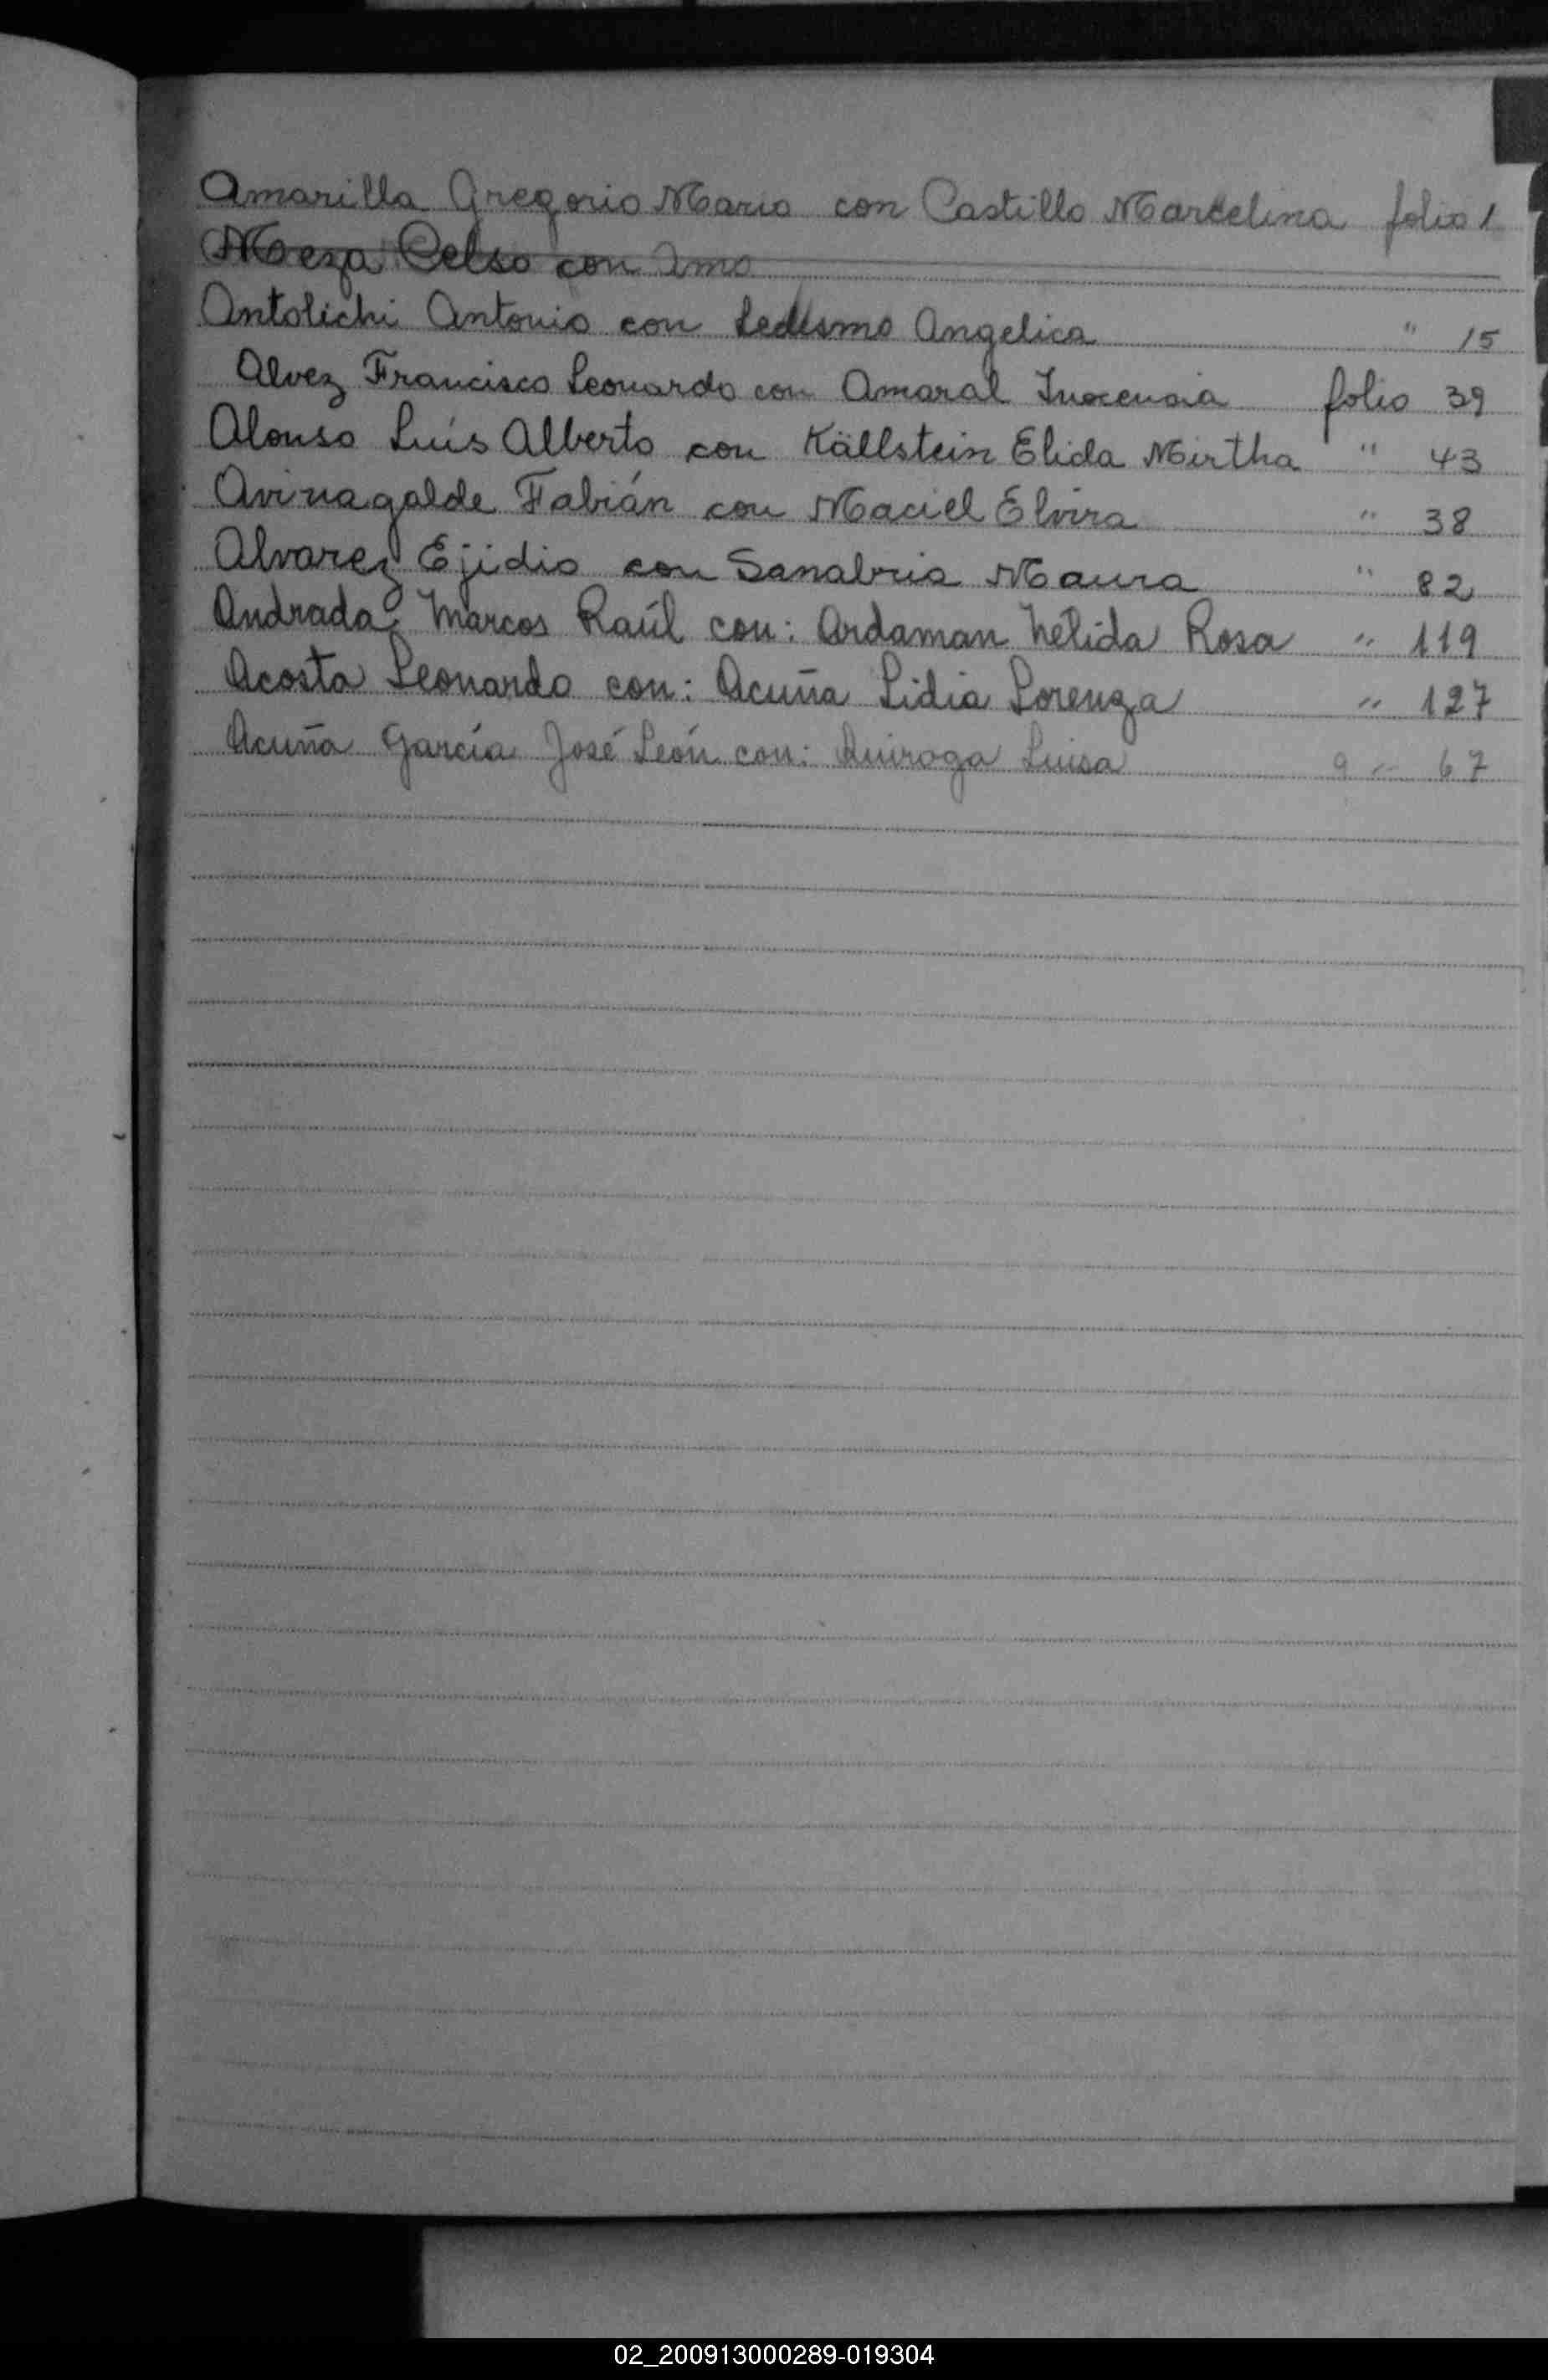 Amarilla Gregorio Mario con Castillo Marcelina folio 1
Meza Celso con Imo
Antolichi Antonio con Ledesma Angelica " 15
Alvez Francisco Leonardo con Amaral Inocencia folio 39
Alonso Luís Alberto con Källstein Elida Mirtha " 43
Avinagalde Fabián con Maciel Elvira " 38
Alvarez Ejidio con Sanabria Maura " 82
Andrada, Marcos Raúl con: Ardaman Nélida Rosa " 119
Acosta Leonardo con: Acuña Lidia Lorenza " 127
Acuña García José León con: Quiroga Luisa " 67
02_200913000289-019304